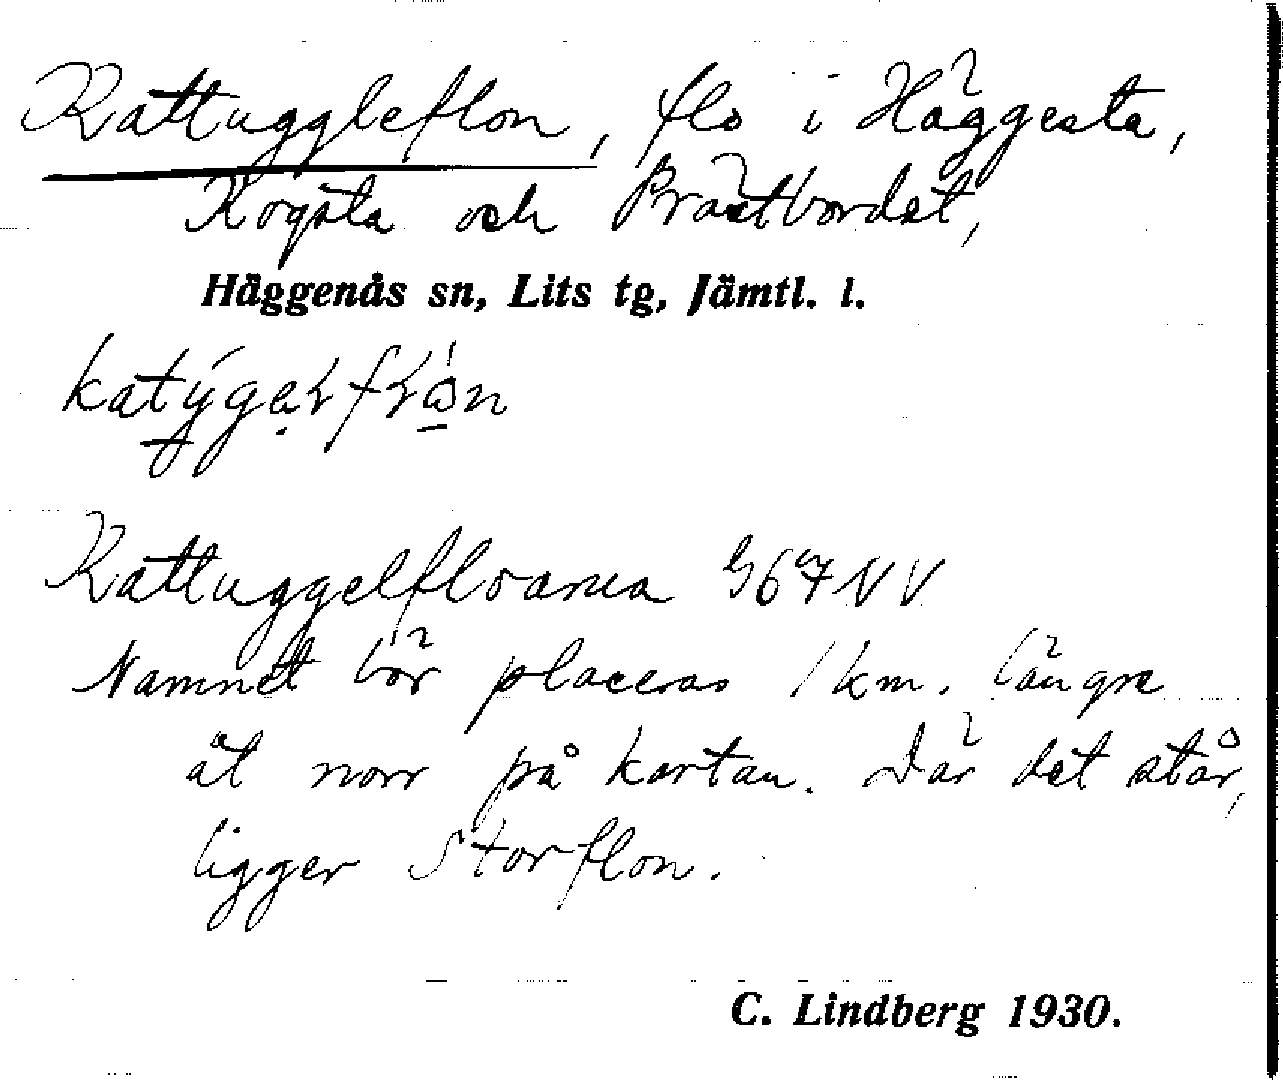 Kattuggleflon, flo i Häggesta,
Kogsta och Prästbordet,
Häggenås sn, Lits tg, Jämtl. l.
Kattuggelfloarna G67NV
Namnet bör placeras 1 km. längre
åt norr på kartan. Där det står,
ligger Storflon.
C. Lindberg 1930.